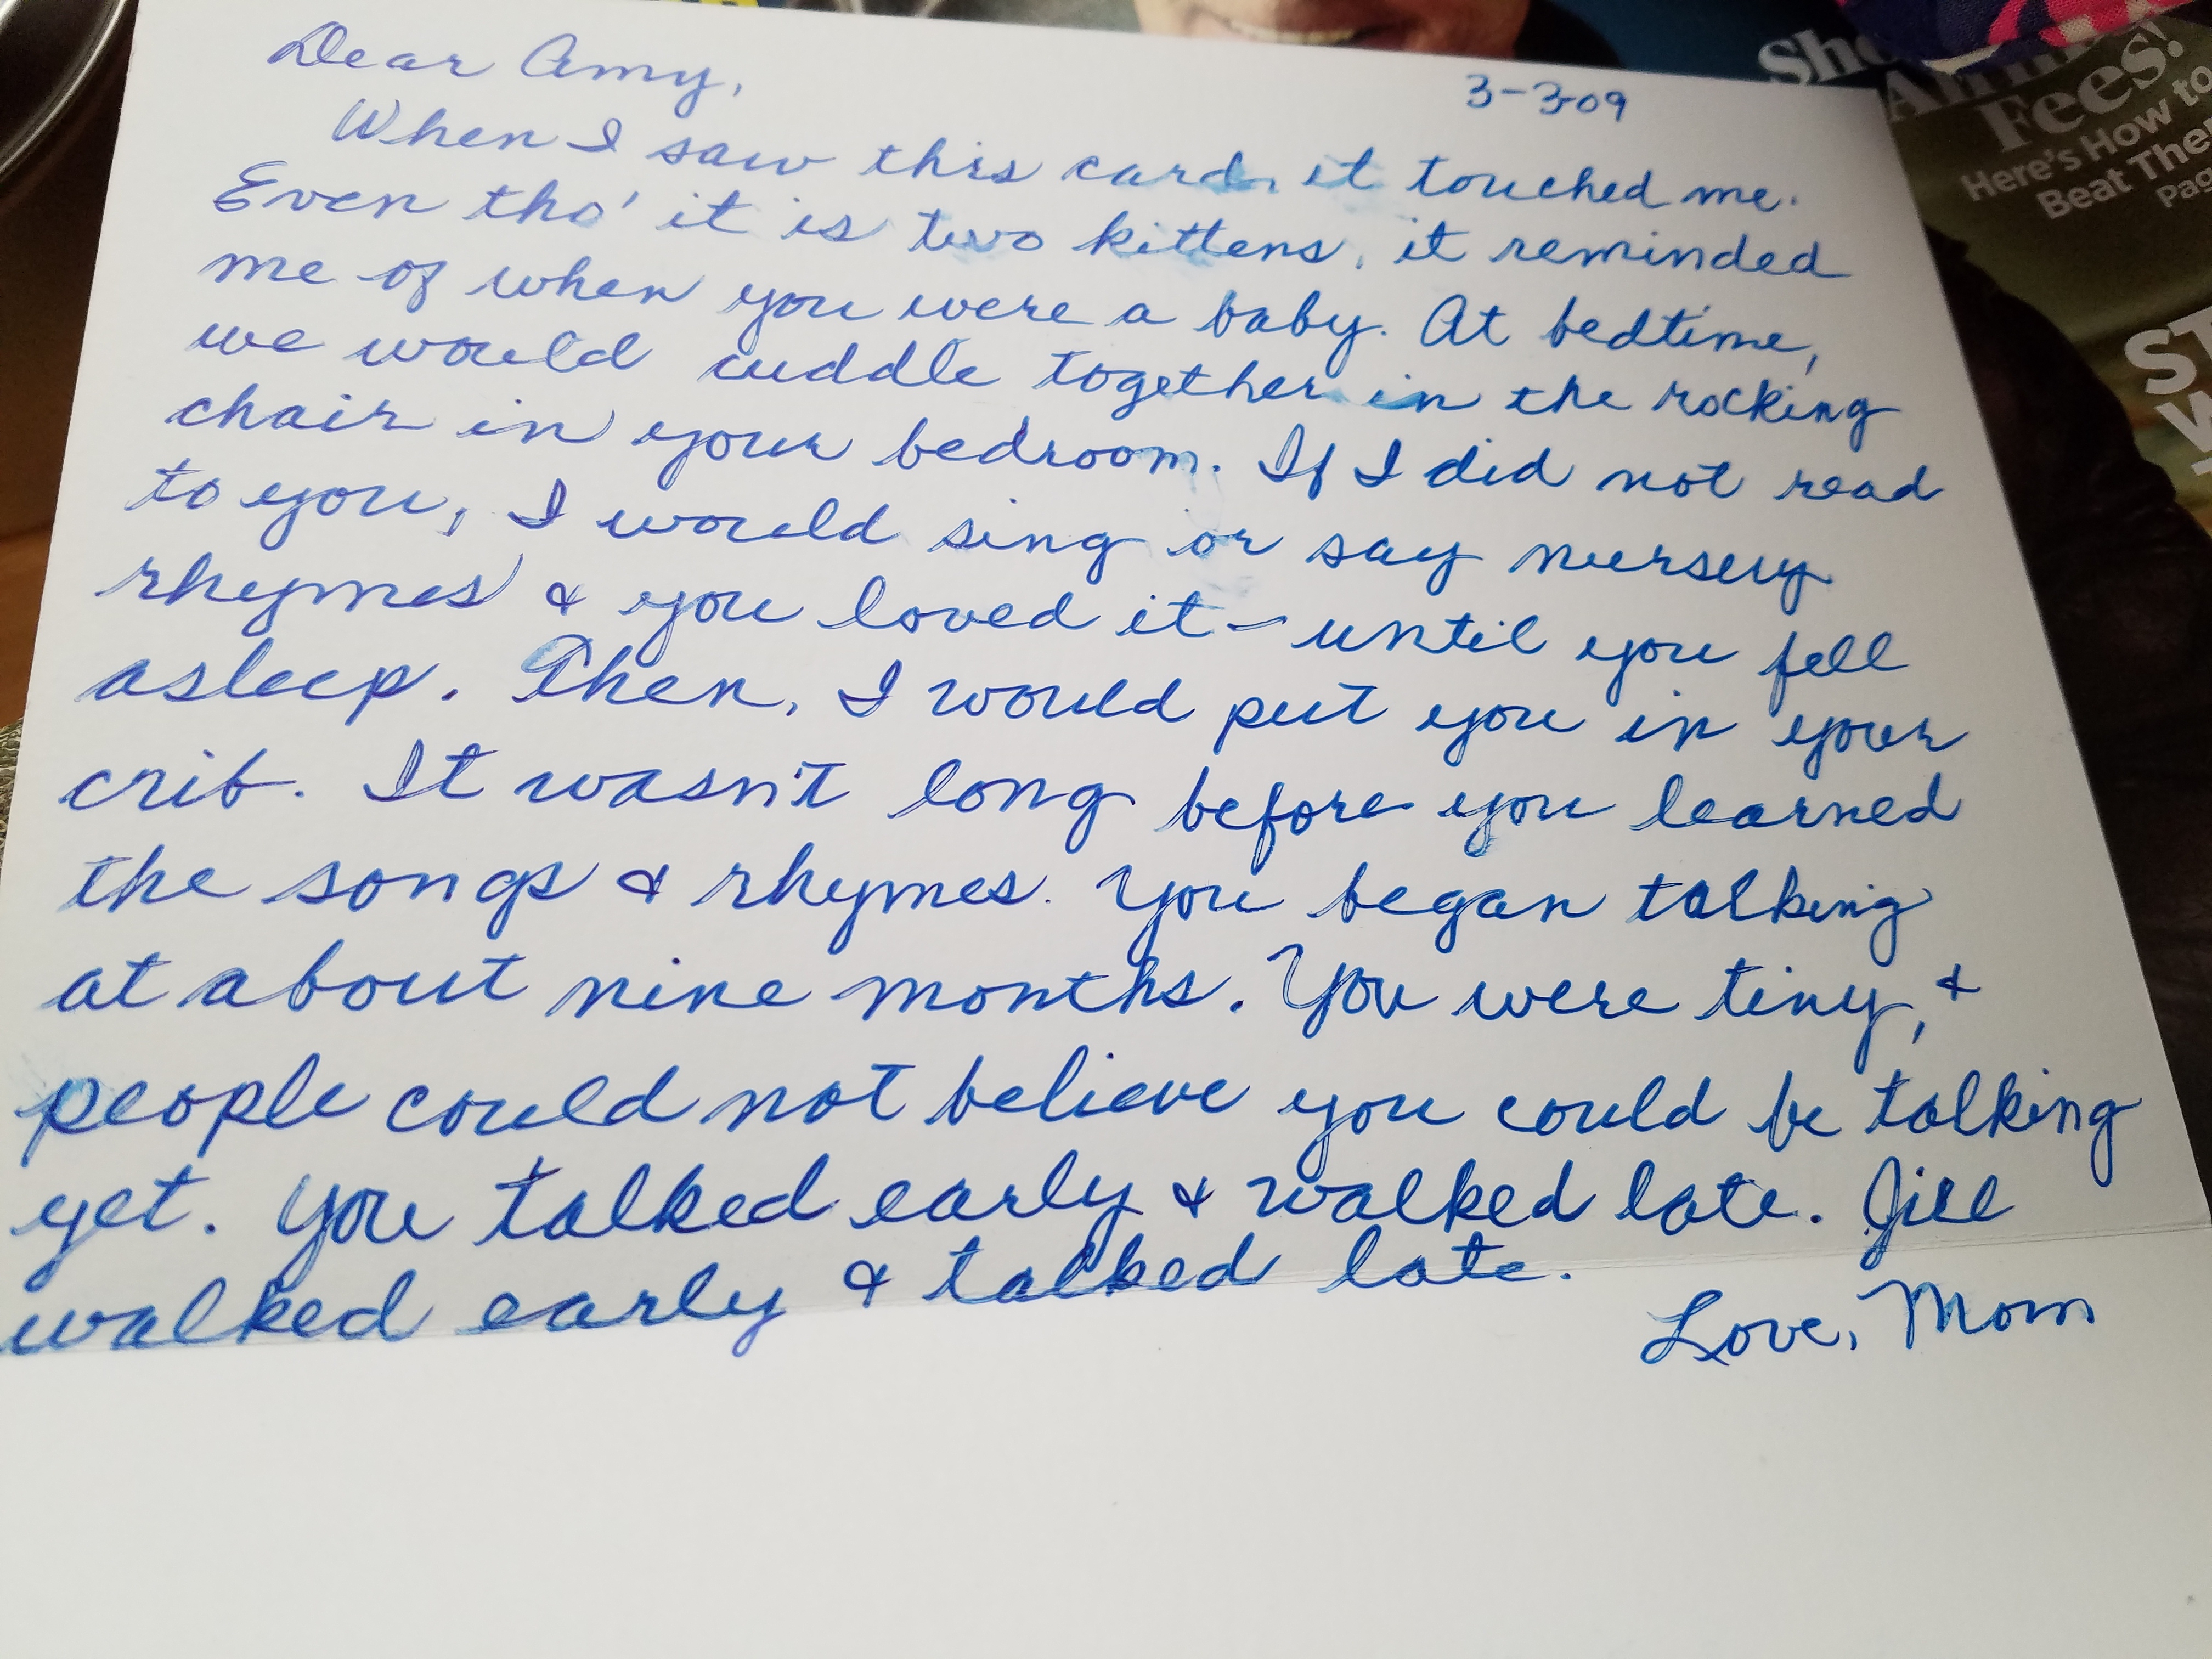 Dear Amy,
3-3-09
When I saw this card, it touched me.
Even tho' it is two kittens, it reminded
me of when you were a baby. At bedtime,
we would cuddle together in the rocking
chair in your bedroom. If I did not read
to you, I would sing or say nursery
rhymes & you loved it - until you fell
asleep. Then, I would put you in your
crib. It wasn't long before you learned
the songs & rhymes. You began talking
at about nine months. You were tiny, &
people could not believe you could be talking
yet. You talked early & walked late. Jill
walked early & talked late.
Love, Mom
Fees!
Here's How to
Beat